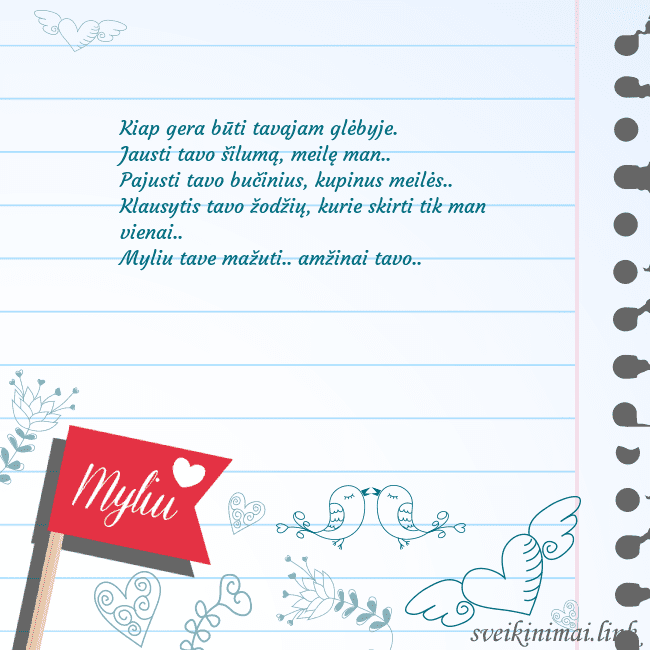 Kiap gera būti tavajam glėbyje.
Jausti tavo šilumą, meilę man..
Pajusti tavo bučinius, kupinus meilės..
Klausytis tavo žodžių, kurie skirti tik man
vienai..
Myliu tave mažuti.. amžinai tavo..
Myliu
sveikinimai.link